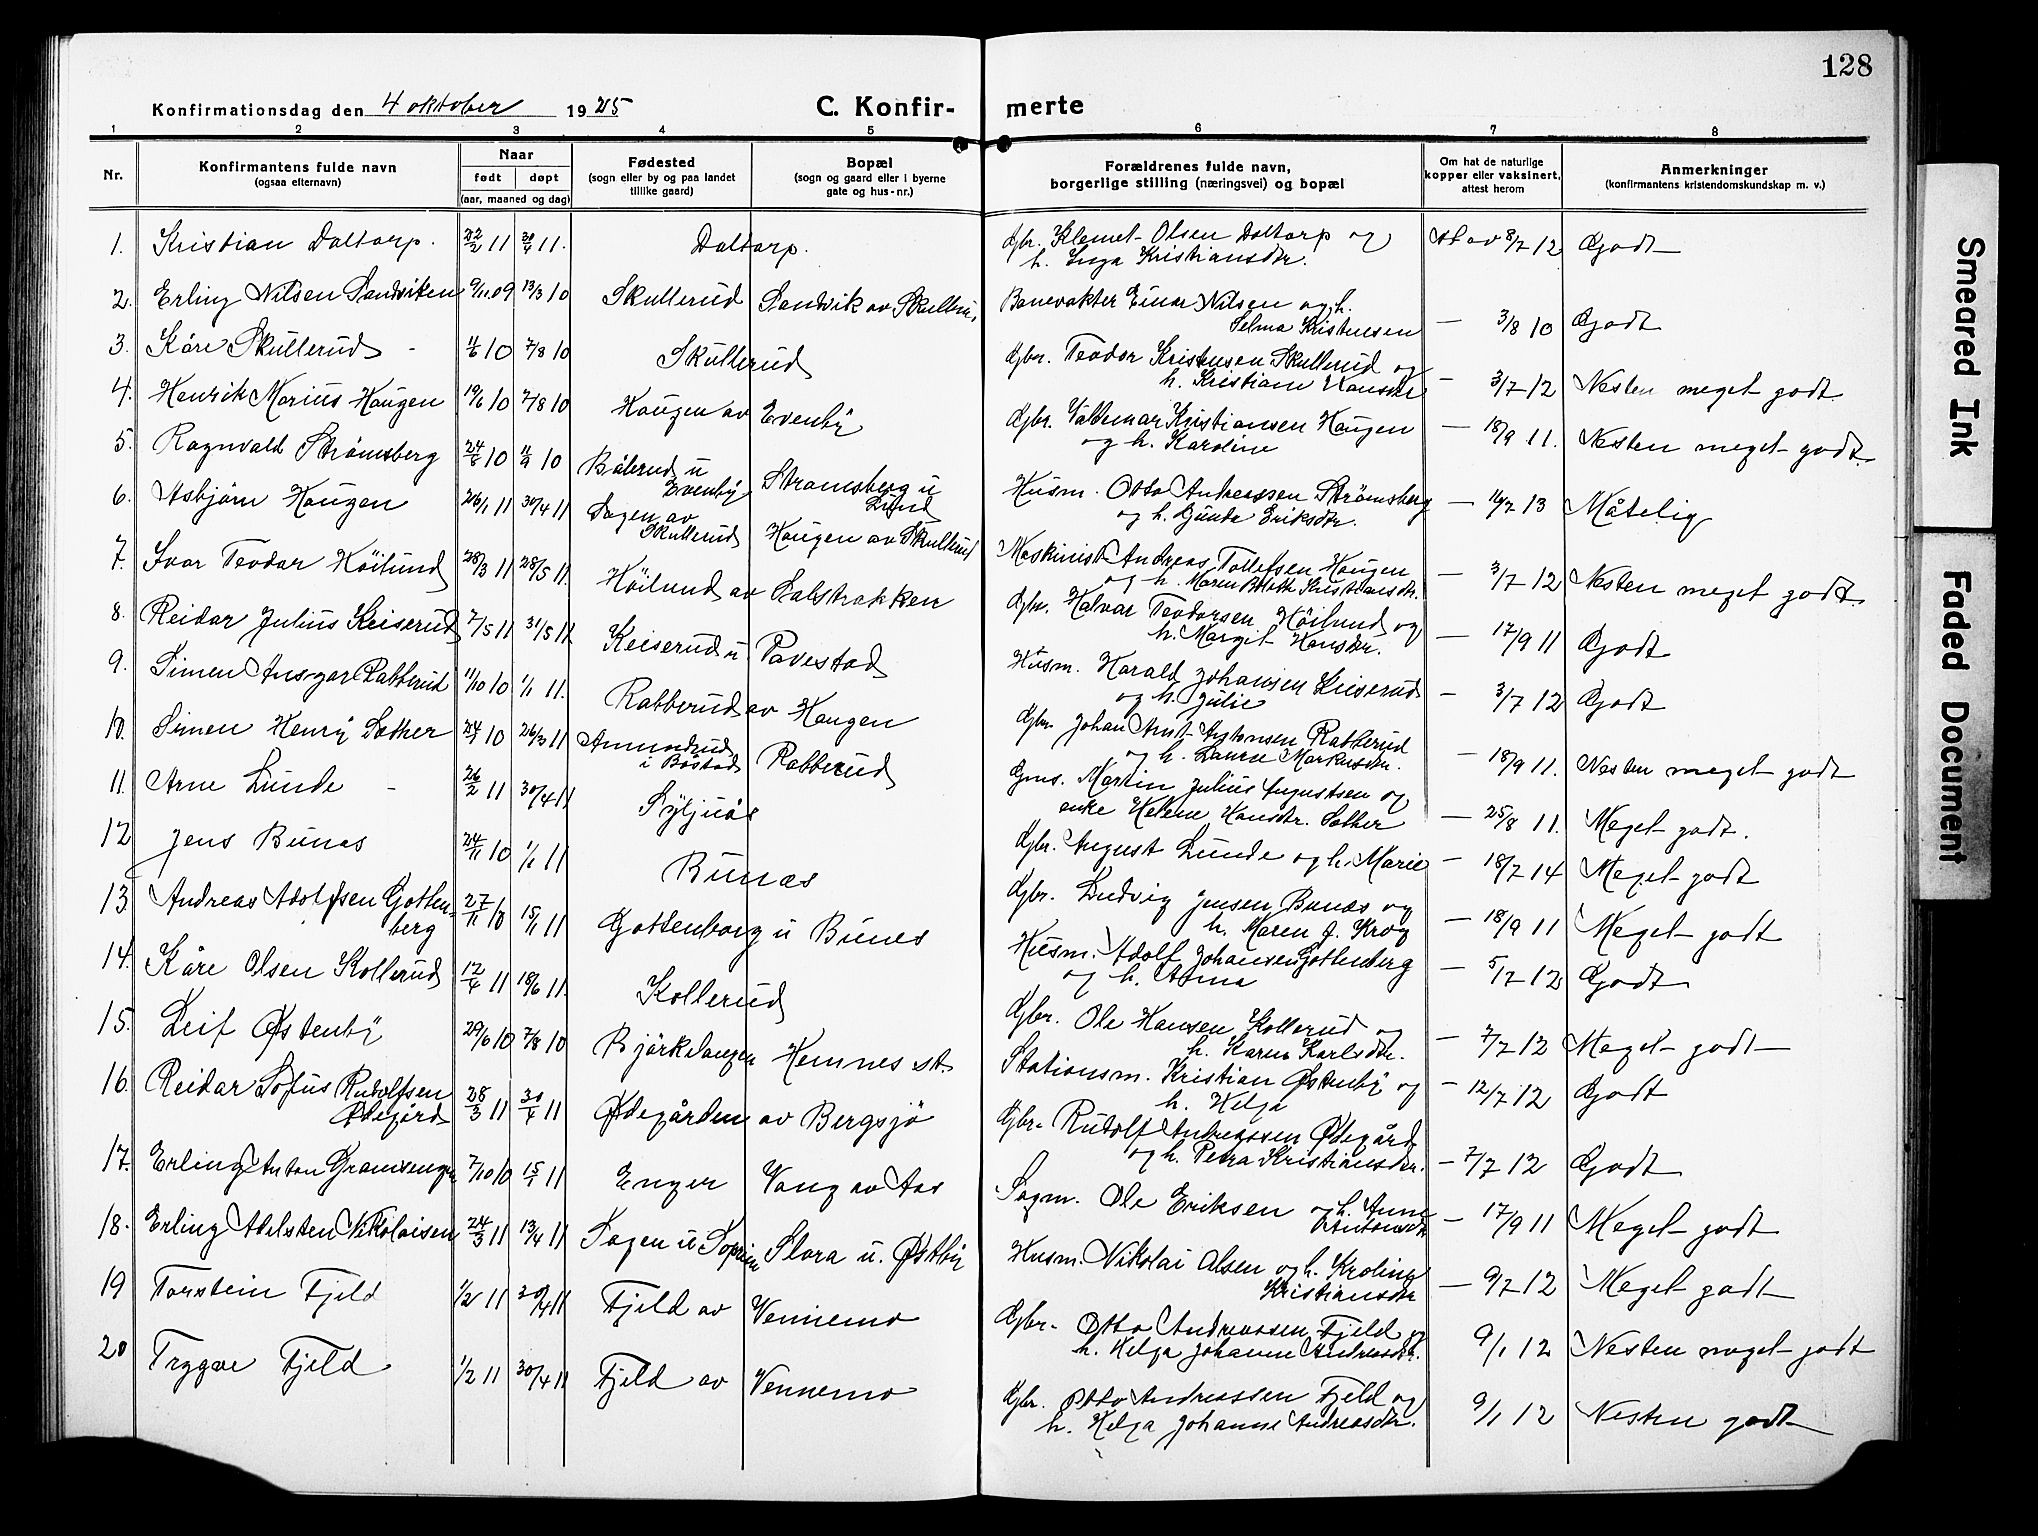 128
Konfirmationsdag den 4 oktober 1925
C. Konfirmerte
1 2 3 4 5 6 7 8
Nr.
Konfirmantens fulde navn
(ogsaa efternavn)
Naar
født døpt
(aar, maaned og dag)
Fødested
(sogn eller by og paa landet
tillike gaard)
Bopæl
(sogn og gaard eller i byerne
gate og hus-nr.)
Forældrenes fulde navn,
borgerlige stilling (næringsvei) og bopæl
Om hat de naturlige
kopper eller vaksinert,
attest herom
Anmerkninger
(konfirmantens kristendomskundskap m. v.)
1. Kristian Daltorp. 22/2 11 30/4 11. Daltorp. Gbr. Klemet Olsen Daltorp og
h. Inga Kristiansdtr. At av 8/7 12 Godt
2. Erling Nilsen Sandviken 9/11 09 13/3 10 Skullerud Sandvik av Skulleru. Banevakter Einar Nilsen og h.
Selma Kristensen — 3/8 10 Godt
3. Kåre Skullerud 11/6 10 7/8 10 Skullerud Gbr. Teodor Kristensen Skullerud og
h. Kristiane Hansdtr — 3/7 12 Nesten meget godt.
4. Henrik Marius Haugen 19/6 10 7/8 10 Haugen av Evenby Gbr. Valdemar Kristiansen Haugen
og h. Karoline — 18/9 11. Nesten meget godt.
5. Ragnvald Strømsberg 24/8 10 11/9 10 Bålerud u
Evenby Strømsberg u
Lund Husm. Otto Andreassen Strømsberg
og h. Gunda Eriksdtr. — 16/7 13 Måtelig
6. Asbjørn Haugen 26/1 11 30/4 11 Sagen av
Skullerud Haugen av Skullerud Maskinist Andreas Tollefsen Haugen
og h. Maren Kristiansdtr. — 3/7 12 Nesten meget godt.
7. Ivar Teodor Høilund 28/3 11 28/5 11. Høilund av Labstrakken Gbr. Halvar Teodorsen Høilund og
h. Margit Hansdtr. — 17/9 11 Godt
8. Reidar Julius Keiserud 7/5 11 31/5 11 Keiserud u. Pavestad Husm. Harald Johansen Keiserud
og h. Julie — 3/7 12 Godt
9. Simen Ansgar Rabberud 11/10 10 1/1 11. Rabberud av Haugen Gbr. Johan Arnt Antonsen Rabberud
og h. Laura Markusdtr. — 18/9 11. Nesten meget godt
10. Simen Henry Sæther 24/9 10 26/3 11 Ammundrud
i Båstad Rabberud Gms. Martin Julius Augustsen og
enke Helene Hansdtr. Sæther — 25/8 11. Meget godt.
11. Arne Lunde 26/2 11 30/4 11 Syljuås Gbr. August Lunde og h. Marie — 18/7 14 Meget godt
12 Jens Bunæs 24/11 10 1/1 11 Bunæs Gbr. Ludvig Jensen Bunæs og
h. Maren J. Krog — 18/9 11 Meget godt
13 Andreas Adolfsen Gotten-
berg 27/11 10 15/1 11 Gottenborg u Bunes Husm. Adolf Johansen Gottenberg
og h. Anna — 5/7 12 Godt
14. Kåre Olsen Kollerud 12/4 11 18/6 11. Kollerud Gbr. Ole Hansen Kollerud og
h. Karen Karlsdtr. — 7/7 12 Meget godt
15. Leif Østenby 29/6 10 7/8 10 Bjørkelangen Hemnes st. Stationsm. Kristian Østenby og
h. Helga — 12/7 12 Godt
16. Reidar Sofus Rudolfsen
Ødegård 28/3 11 30/4 11 Ødegården av Bergsjø Gbr. Rudolf Andreassen Ødegård
og h. Petra Kristiansdtr. — 7/7 12 Godt
17. Erling Anton Gramsenger 7/10 10 15/1 11 Enger Vang av Aas Sagm. Ole Eriksen og h. Anne
Antonsdtr — 17/9 11 Meget godt
18. Erling Adelsten Nikolaisen 24/3 11 13/4 11 Sagen u Slora u. Østby Husm. Nikolai Olsen og h. Kroline
Kristiansdtr — 9/7 12 Meget godt
19 Torstein Fjeld 1/2 11 30/4 11 Fjeld av Vennemo Gbr. Otto Andreassen Fjeld og
h. Helga Johanne Andreasdtr. 9/1 12 Nesten meget godt
20 Trygve Fjeld 1/2 11 30/4 11 Fjeld av Vennemo Gbr. Otto Andreassen Fjeld og
h. Helga Johanne Andreasdtr. 9/1 12 Nesten godt
Smeared Ink
Faded Document